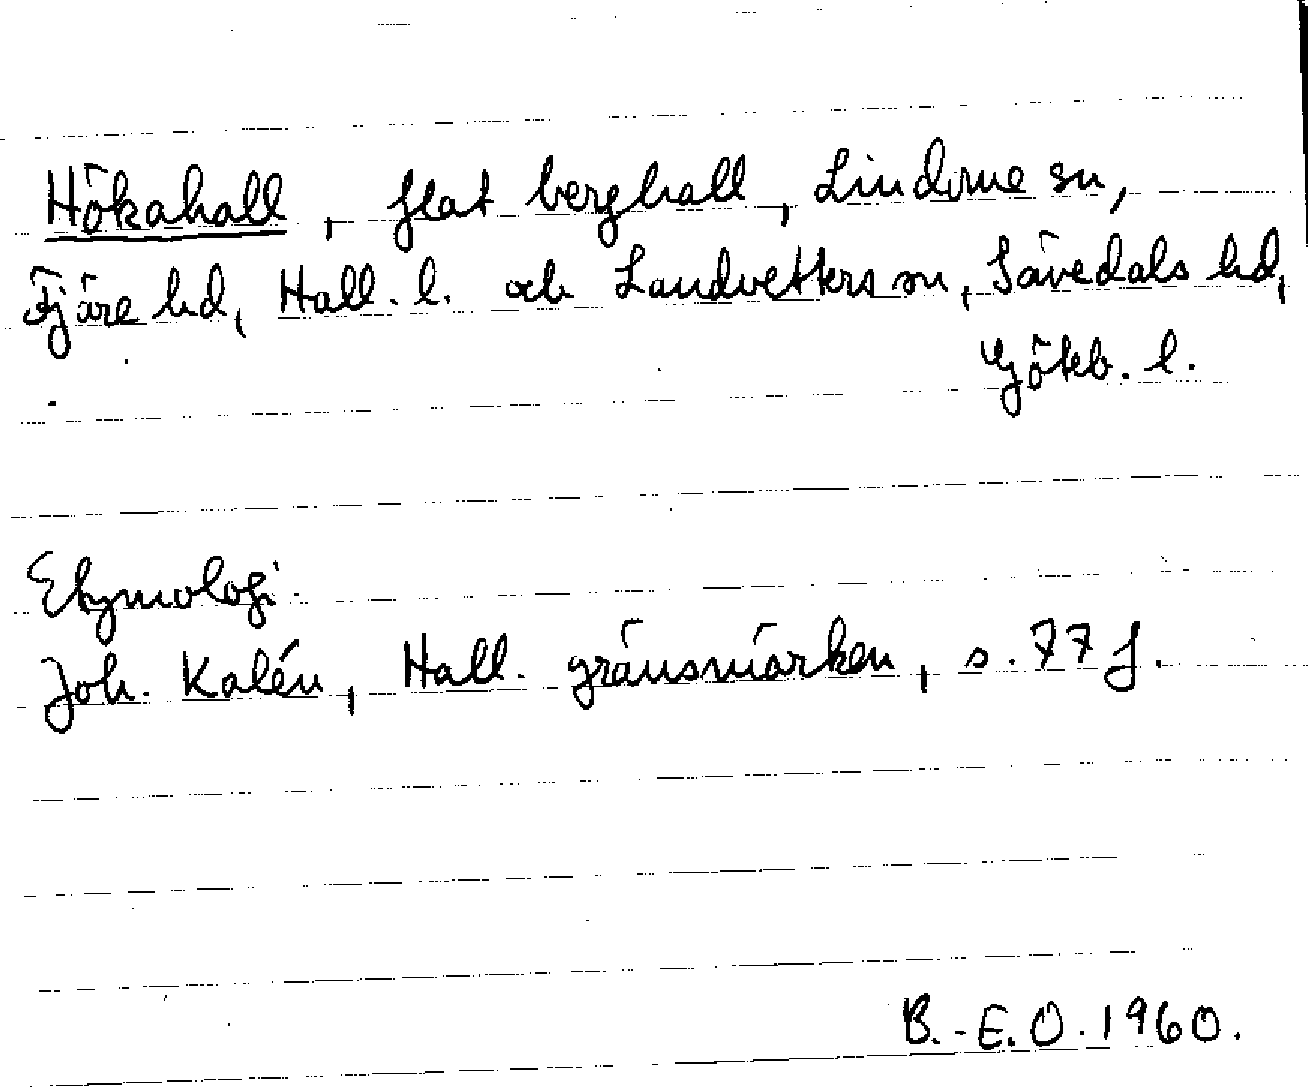 Hökahall, flat berghall, Lindome sn,
Fjäre hd, Hall. l. och Landvetters sn, Sävedals hd,
Göteb. l.
Etymologi.
Joh. Kalén, Hall. gränsmärken, s. 77 f.
B.-E. O. 1960.